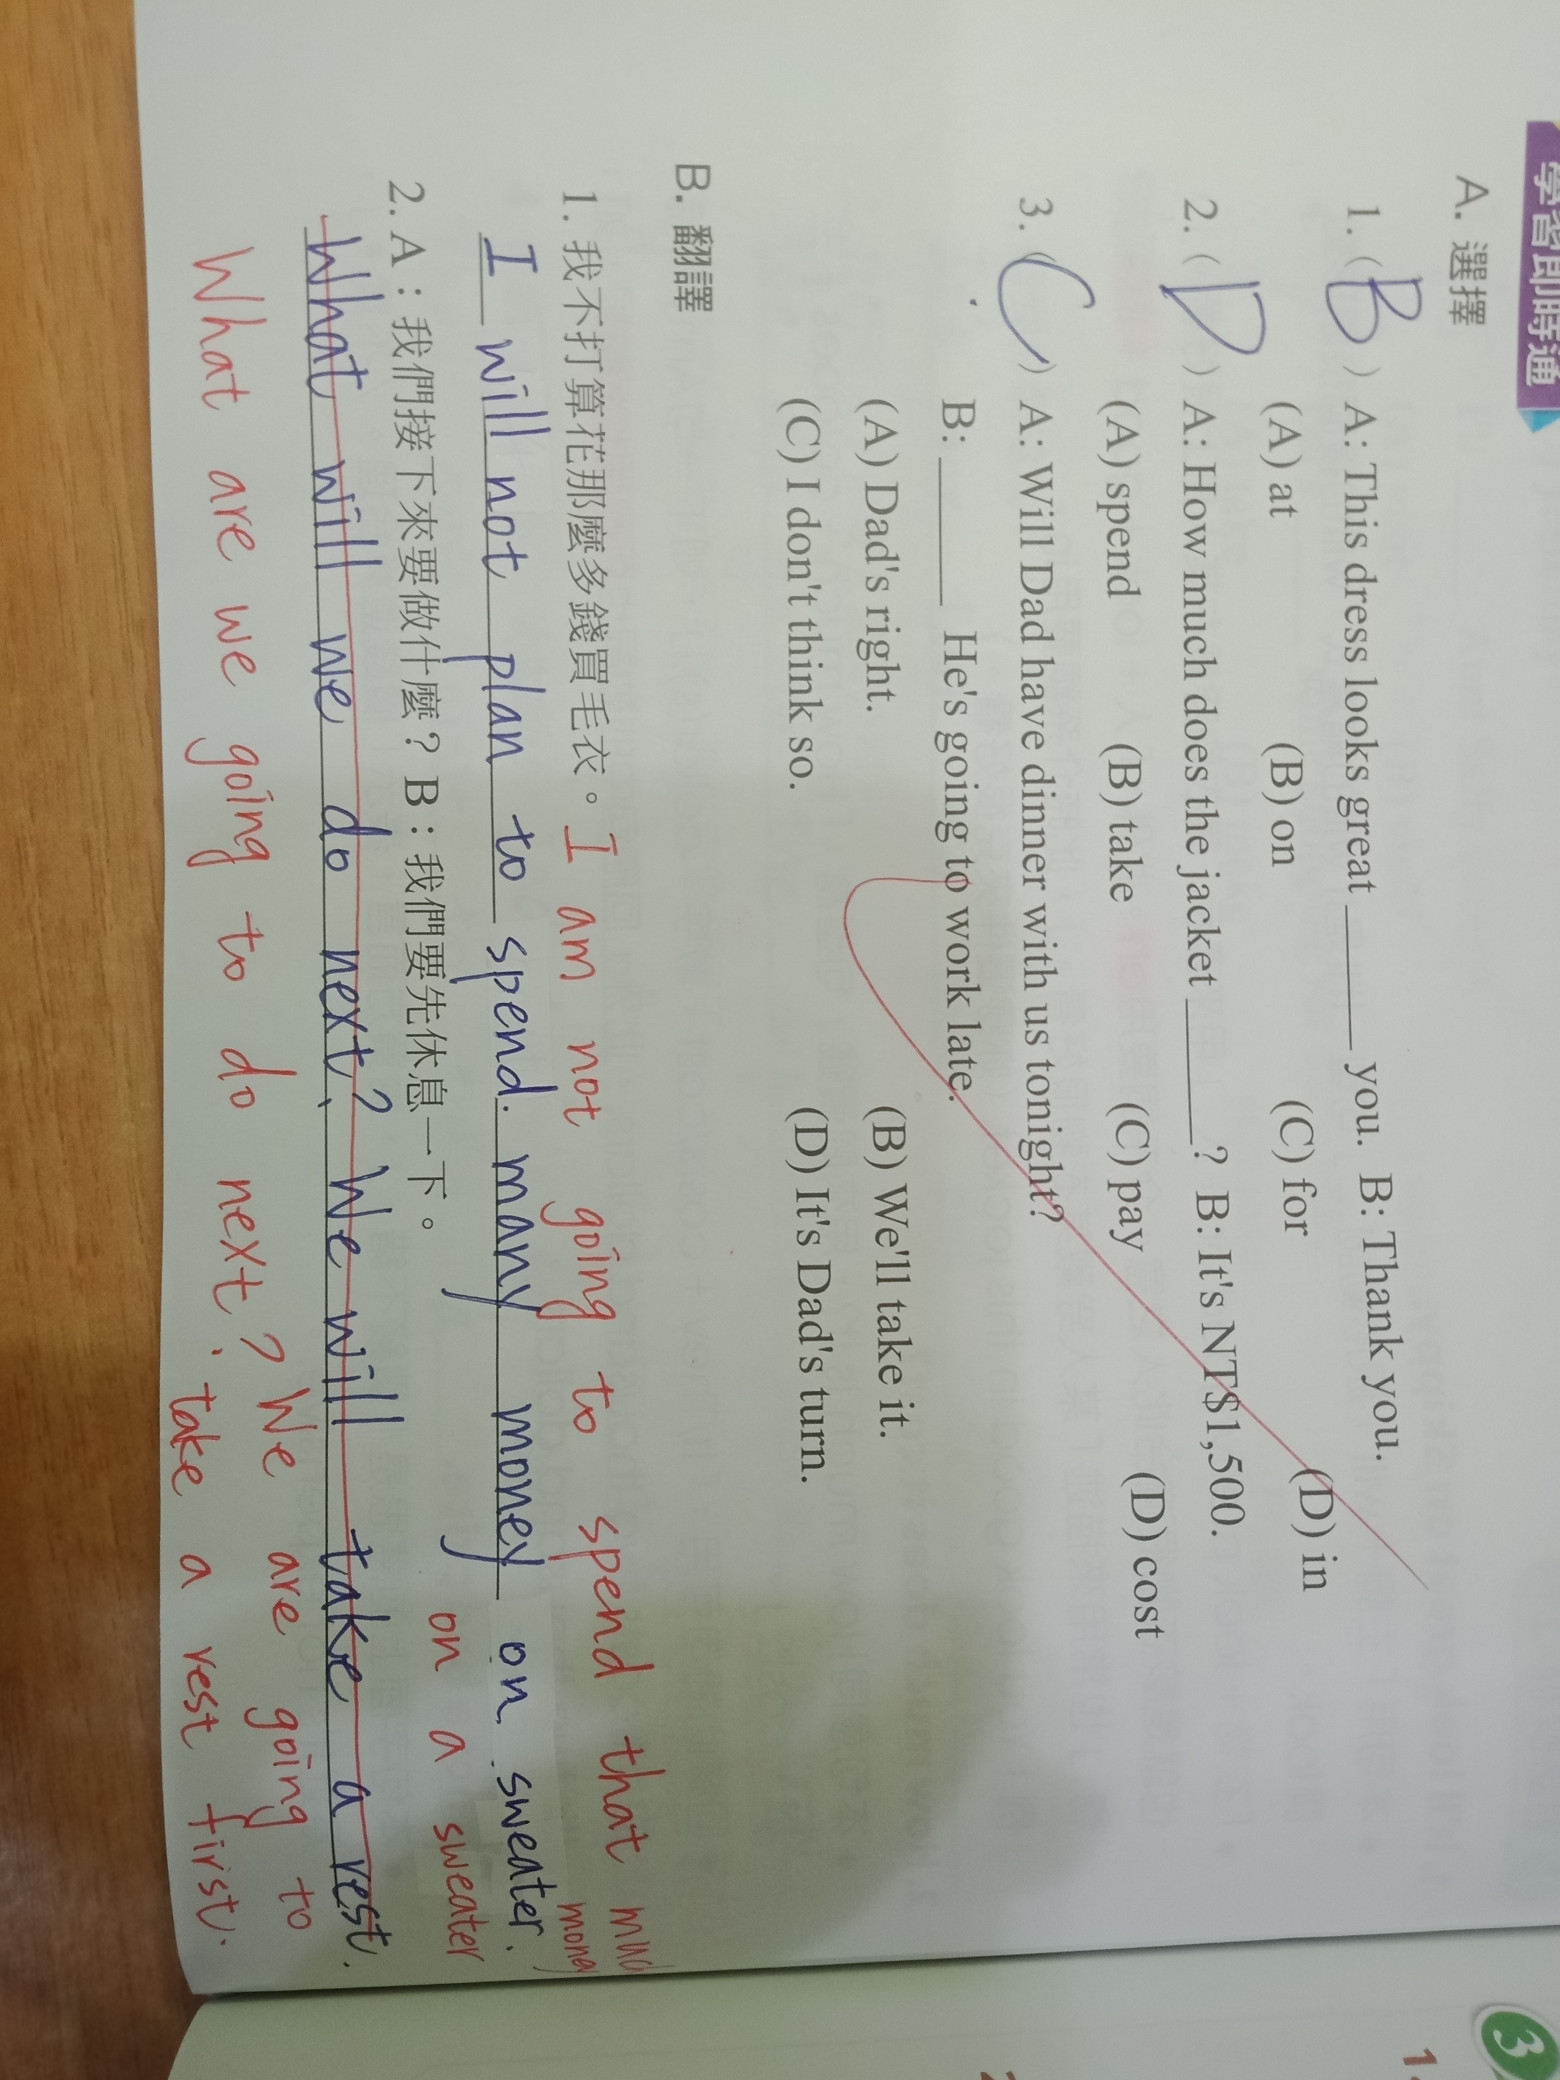 學習即時通
A. 選擇
1. ( B ) A: This dress looks great ______ you. B: Thank you.
(A) at (B) on (C) for (D) in
2. ( D ) A: How much does the jacket ______? B: It's NT$1,500.
(A) spend (B) take (C) pay (D) cost
3. ( C ) A: Will Dad have dinner with us tonight?
B: ______ He's going to work late.
(A) Dad's right. (B) We'll take it.
(C) I don't think so. (D) It's Dad's turn.
B. 翻譯
1. 我不打算花那麼多錢買毛衣。 I am not going to spend that much money
I will not plan to spend. many money on sweater.
on a sweater
2. A：我們接下來要做什麼？B：我們要先休息一下。
What will we do next? We will take a rest.
What are we going to do next? We are going to
take a rest first.
3
1.